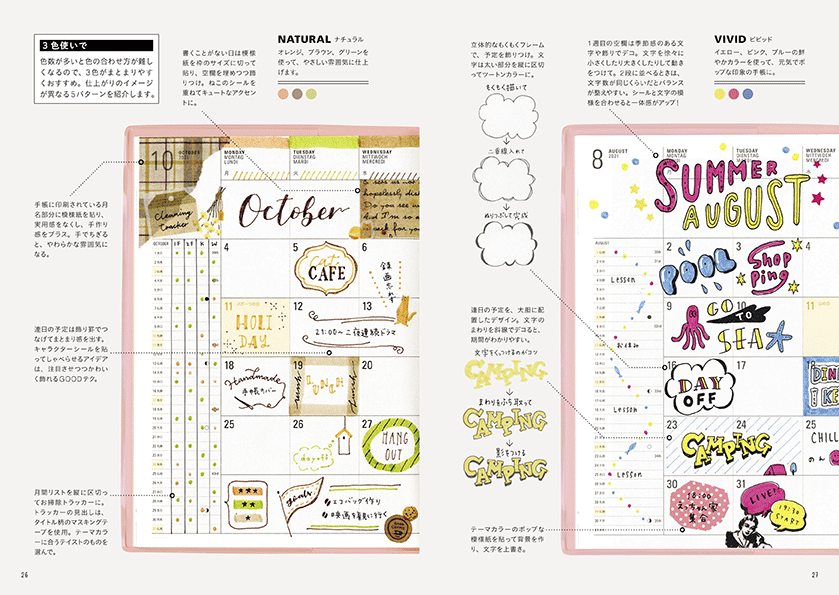 3色使いで
色数が多いと色の合わせ方が難し
くなるので、3色がまとまりやす
くおすすめ。仕上がりのイメージ
が異なる5パターンを紹介します。
書くことがない日は模様
紙を枠のサイズに切って
貼り、空欄を埋めつつ飾
りつけ。ねこのシールを
重ねてキュートなアクセン
トに。
NATURAL ナチュラル
オレンジ、ブラウン、グリーンを
使って、やさしい雰囲気に仕上
げます。
手帳に印刷されている月
名部分に模様紙を貼り、
実用感をなくし、手作り
感をプラス。手でちぎる
と、やわらかな雰囲気に
なる。
連日の予定は飾り罫でつ
なげてまとまり感を出す。
キャラクターシールを貼
ってしゃべらせるアイデア
は、注目させつつかわい
く飾れるGOODテク。
月間リストを縦に区切っ
てお掃除トラッカーに。
トラッカーの見出しは、
タイトル柄のマスキングテ
ープを使用。テーマカラ
ーに合うテイストのものを
選んで。
10 OCTOBER
2021
MONDAY
MONTAG
LUNDI
TUESDAY
DIENSTAG
MARDI
WEDNESDAY
MITTWOCH
MERCREDI
月
火
水
Cleaning
Tracker
October
OCTOBER 1F 2F K W
4
5
6
Cat
CAFE
録画忘れず
11
12
13
HOLI
DAY
21:00〜二夜連続ドラマ
18
19
20
Handmade
手帳カバー
LUNCH
25
26
27
dayoff
HANG
OUT
goals
エコバッグ作り
映画を観に行く
26
立体的なもくもくフレーム
で、予定を飾りつけ。文
字は太い部分を縦に区切
ってツートンカラーに。
もくもく描いて
二重線入れて
ぬりつぶして完成
1週目の空欄は季節感のある文
字や飾りでデコ。文字を徐々に
小さくしたり大きくしたりして動き
をつけて。2段に並べるときは、
文字数が同じくらいだとバランス
が整えやすい。シールと文字の模
様を合わせると一体感がアップ!
VIVID ビビッド
イエロー、ピンク、ブルーの鮮
やかカラーを使って、元気でポ
ップな印象の手帳に。
連日の予定を、大胆に配
置したデザイン。文字の
まわりを斜線でデコると、
期間がわかりやすい。
文字をくっつけるのがコツ
CAMPING
まわりをふち取って
CAMPING
影をつける
CAMPING
テーマカラーのポップな
模様紙を貼って背景を作
り、文字を上書き。
8 AUGUST
2021
MONDAY
MONTAG
LUNDI
TUESDAY
DIENSTAG
MARDI
SUMMER
AUGUST
AUGUST
Lesson
お休み
Lesson
Lesson
2
3
4
POOL
Shop
ping
9
10
GO
TO
SEA
16
17
DAY
OFF
23
24
25
CAMPING
CHILL
30
31
18:00
えっちゃん家
集合
LIVE!
19:30
START
27